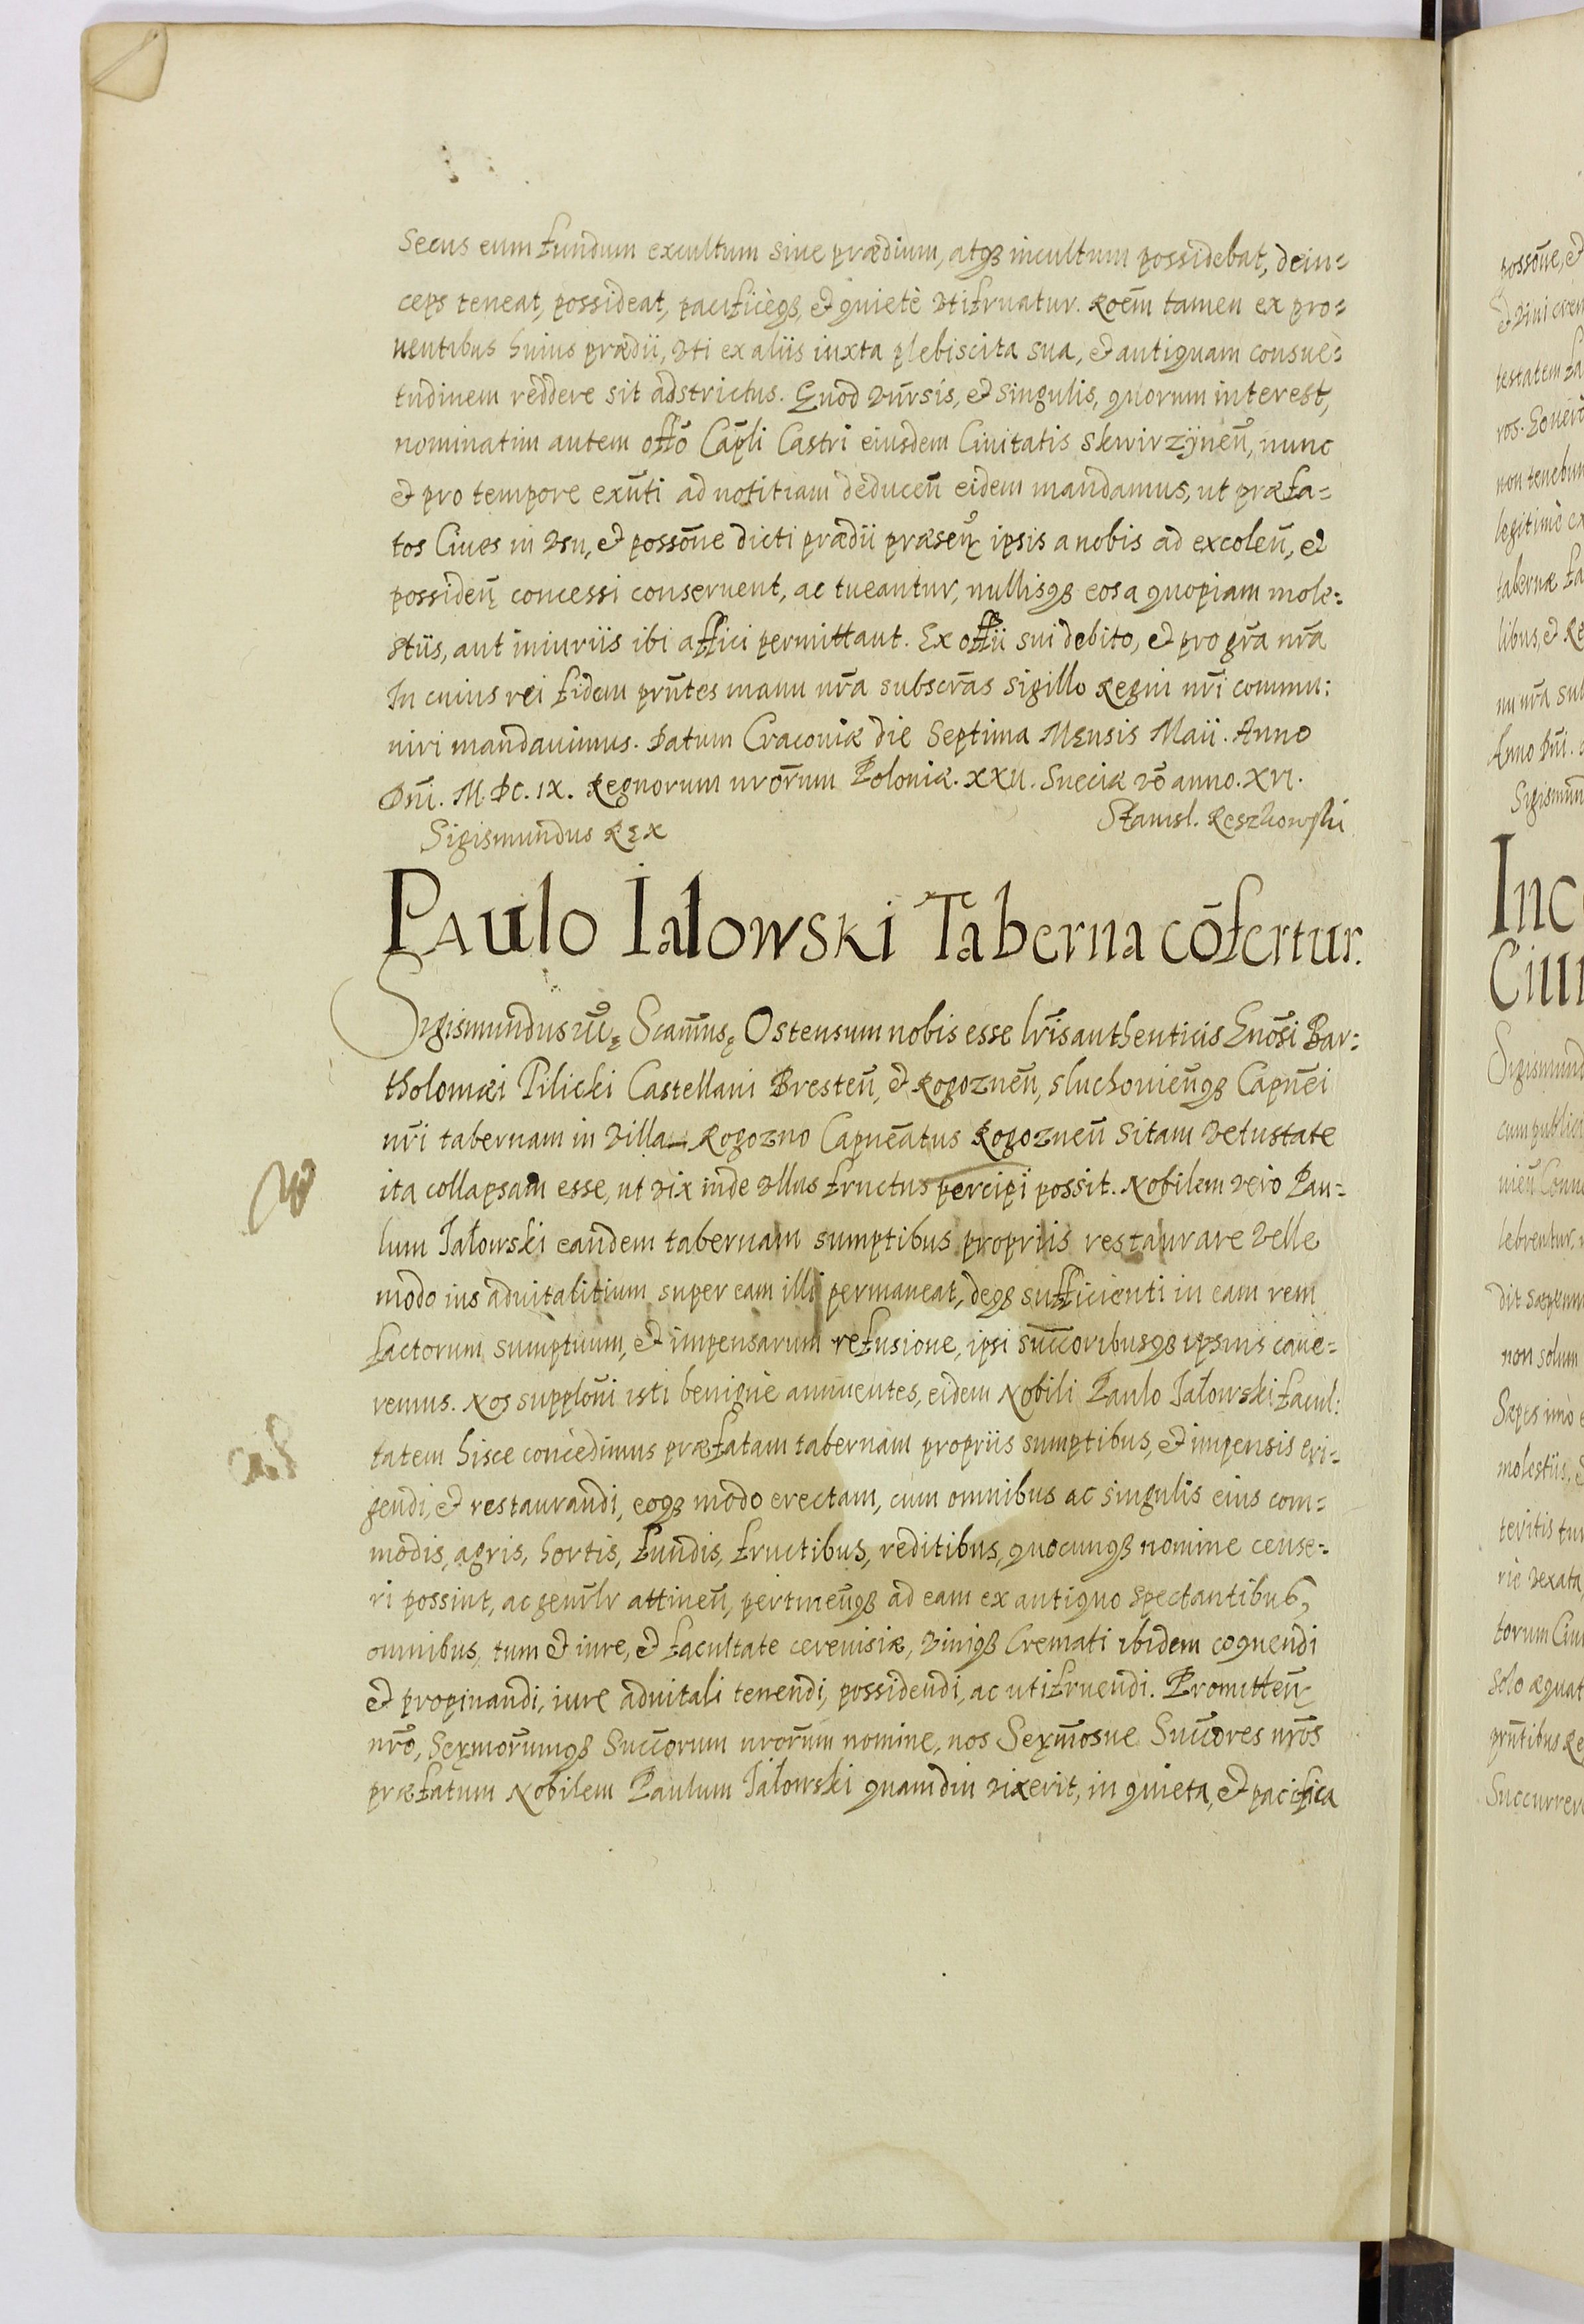 secus eum fundum excultum siue prædium, atqȝ incultum possidebat, dein=
ceps teneat, possideat, pacificèqȝ, et quietè vtifruatur. Roēm tamen ex pro=
uentibus huius prædii, vti ex aliis iuxta plebiscita sua, et antiquam consue=
tudinem reddere sit adstrictus. Quod vūrsis, et singulis, quorum interest,
nominatim autem offō Cāpli Castri eiusdem Ciuitatis Skwirzÿneñ, nunc
et pro tempore exūti ad notitiam deduceñ eidem mandamus, ut præfa=
tos Ciues in vsu, et possōne dicti prædii præseñ ipsis a nobis ad excoleñ, et
possideñ concessi conseruent, ac tueantur, nullisqȝ eos a quopiam mole=
stiis, aut iniuriis ibi affici permittant. Ex offii sui debito, et pro grā nrā
In cuius rei fidem prn̄tes manu nrā subscrās sigillo Regni nrī commu:
niri mandauimus. Datum Cracouiæ die Septima Mensis Maii. Anno
Dn̄i. M. DC. IX. Regnorum nrōrum Poloniæ. XXII. Sueciæ vō anno. XVI.
Sigismundus Rex
Stanisl. Reszkowski
Paulo Iałowski Taberna cōfertur.
Sigismundus Scam̄us Ostensum nobis esse lrīs authenticis Gnōsi Bar:
tholomæi Pilicki Castellani Bresteñ, et Rogozneñ, Sluchouieñqȝ Capnēi
nrī tabernam in villa Rogozno Capnēatus Rogozneñ sitam vetustate
ita collapsam esse, ut vix inde vllus fructus percipi possit. Nobilem vero Pau=
lum Iałowski eandem tabernam sumptibus propriis restaurare velle
modo ius aduitalitium super eam illi permaneat, deqȝ sufficienti in eam rem
factorum sumptuum, et impensarum refusione, ipsi succōribusqȝ ipsius caue=
remus. Nos supplōni isti benignè annuentes, eidem Nobili Paulo Iałowski facul:
tatem hisce concedimus præfatam tabernam propriis sumptibus, et impensis eri=
gendi, et restaurandi, eoqȝ modo erectam, cum omnibus ac singulis eius com=
modis, agris, hortis, fundis, fructibus, reditibus, quocunqȝ nomine cense=
ri possint, ac genr̄lr attineñ, pertineñqȝ ad eam ex antiquo spectantibus,
omnibus, tum et iure, et facultate cereuisiæ, viniqȝ Cremati ibidem coquendi
et propinandi, iure aduitali tenendi, possidendi, ac utifruendi. Promitteñ
nrō, Serm̄orumqȝ Succorum nrōrum nomine, nos Serm̄osue Succores nrōs
præfatum Nobilem Paulum Iałowski quamdiu vixerit, in quieta, et pacifica